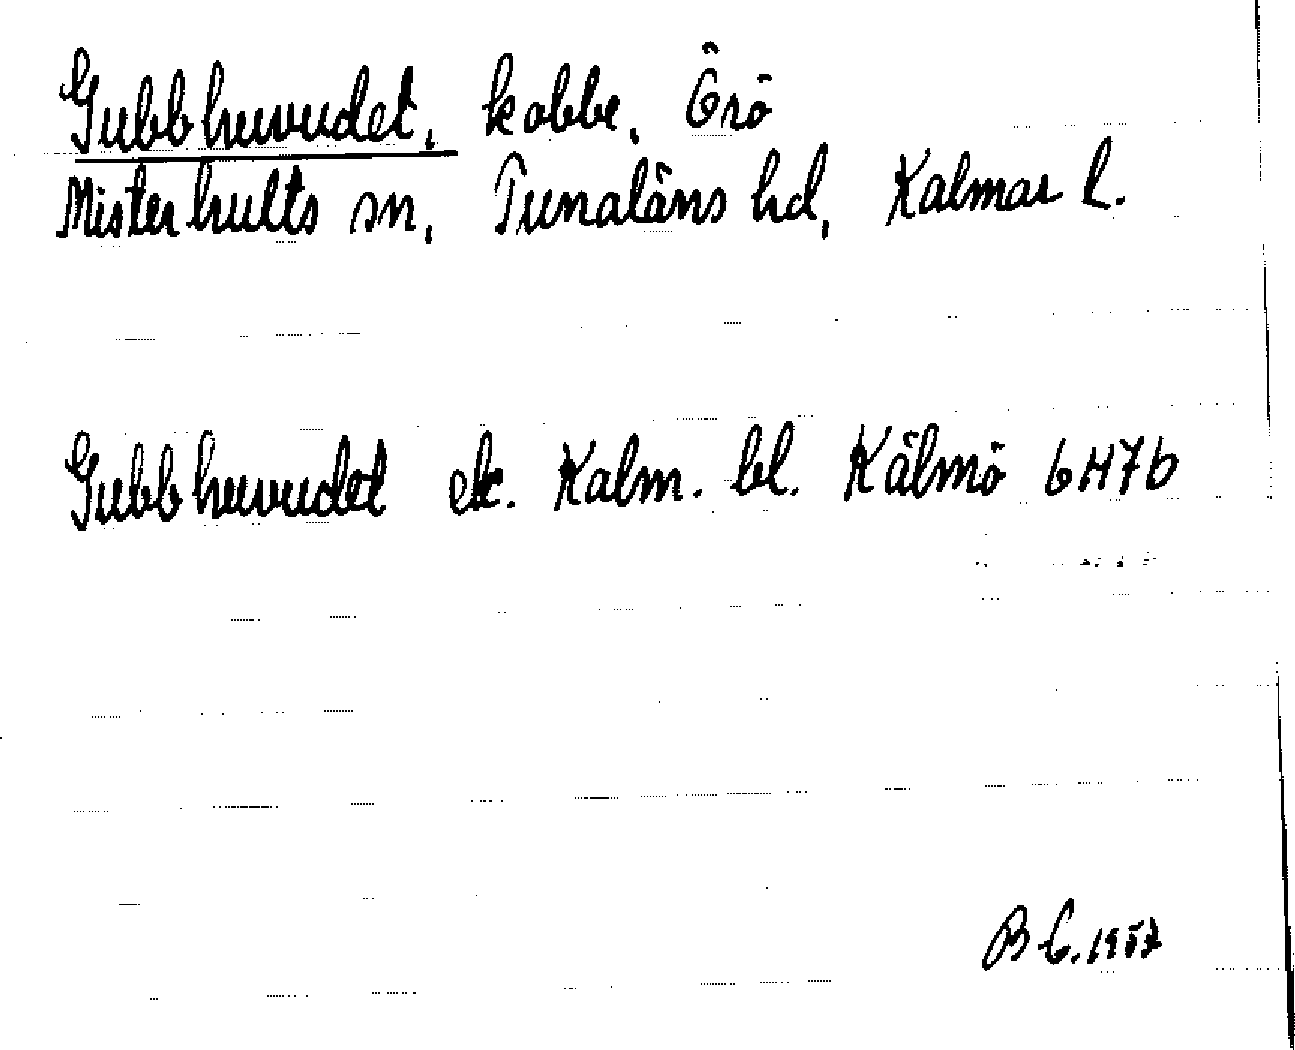 Gubbhuvudet, kobbe, Örö
Misterhults sn, Tunaläns hd, Kalmar l.
Gubbhuvudet ek. Kalm. bl. Kälmö 6H7b
B C. 1957